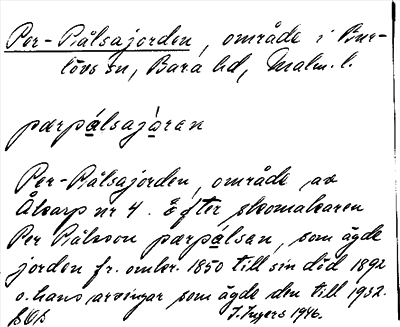 Per-Pålsajorden, område i Bur-
lövs sn, Bara hd, Malm. l.
pærpålsajoran
Per-Pålsajorden, område av
Åkarp nr 4. Efter skomakaren
Per Pålsson pærpålsan, som ägde
jorden fr. omkr. 1850 till sin död 1892
o. hans arvingar som ägde den till 1932.
I. Ingers 1946.